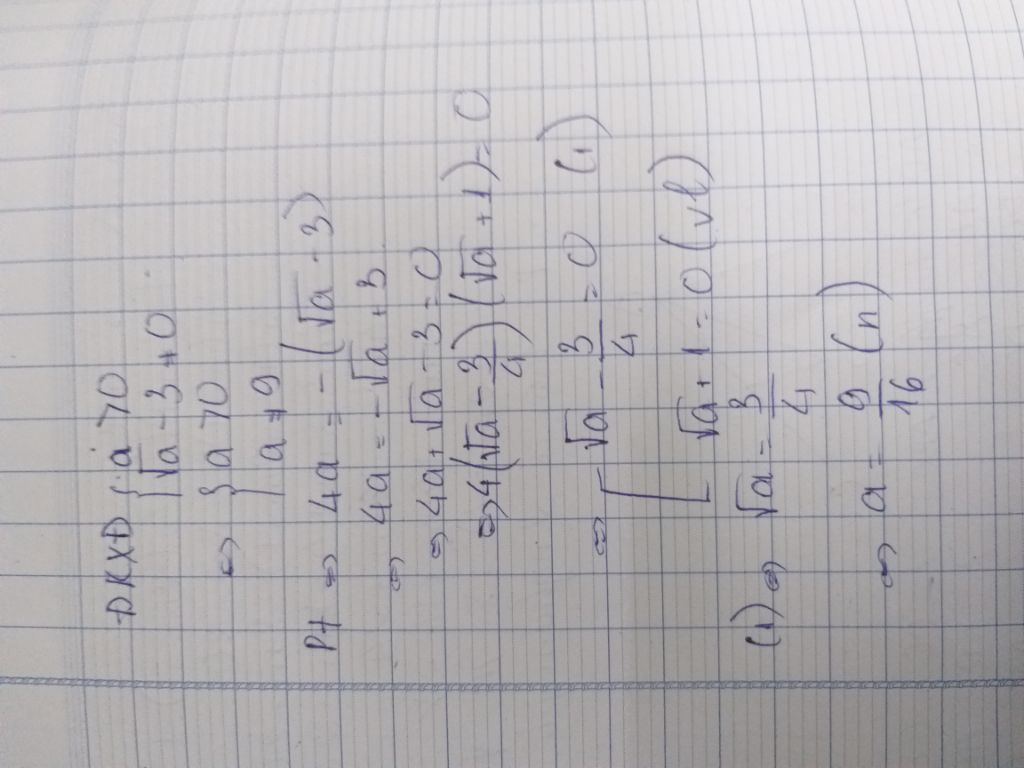 ĐKXĐ { a > 0
{ √a - 3 ≠ 0
⇔ { a > 0
{ a ≠ 9
Pt ⇔ 4a = - (√a - 3)
⇔ 4a = - √a + 3
⇔ 4a + √a - 3 = 0
⇔ 4(√a - 3/4) (√a + 1) = 0
⇔ [ √a - 3/4 = 0 (1)
[ √a + 1 = 0 (vl)
(1) ⇔ √a = 3/4
⇔ a = 9/16 (n)